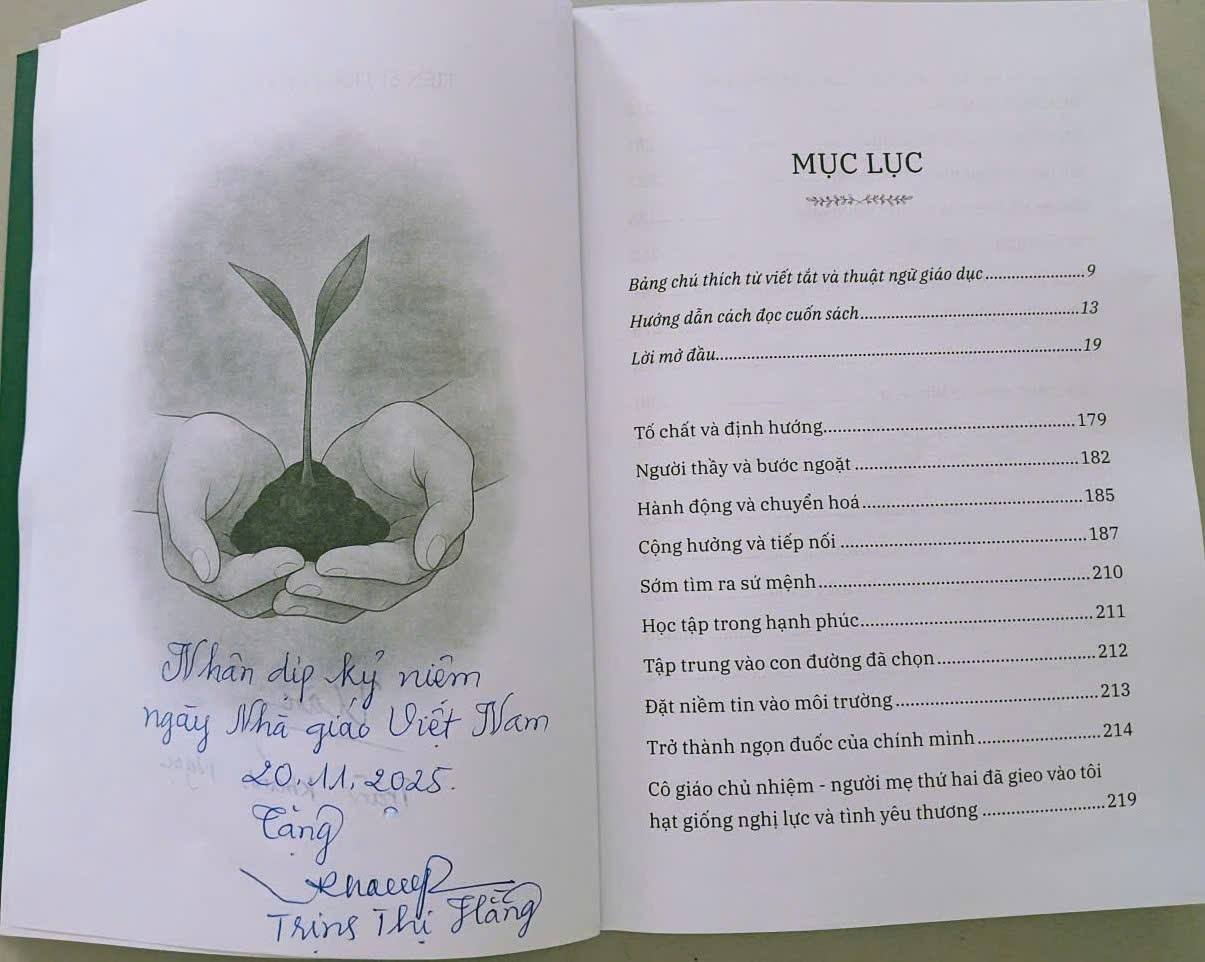 Nhân dịp kỷ niệm
ngày Nhà giáo Việt Nam
20.11.2025.
Tặng
Trịnh Thị Hằng
MỤC LỤC
Bảng chú thích từ viết tắt và thuật ngữ giáo dục.......................9
Hướng dẫn cách đọc cuốn sách..................................................13
Lời mở đầu....................................................................................19
Tố chất và định hướng..................................................179
Người thầy và bước ngoặt............................................182
Hành động và chuyển hoá...........................................185
Cộng hưởng và tiếp nối................................................187
Sớm tìm ra sứ mệnh.....................................................210
Học tập trong hạnh phúc.............................................211
Tập trung vào con đường đã chọn...............................212
Đặt niềm tin vào môi trường.......................................213
Trở thành ngọn đuốc của chính mình.........................214
Cô giáo chủ nhiệm - người mẹ thứ hai đã gieo vào tôi
hạt giống nghị lực và tình yêu thương........................219